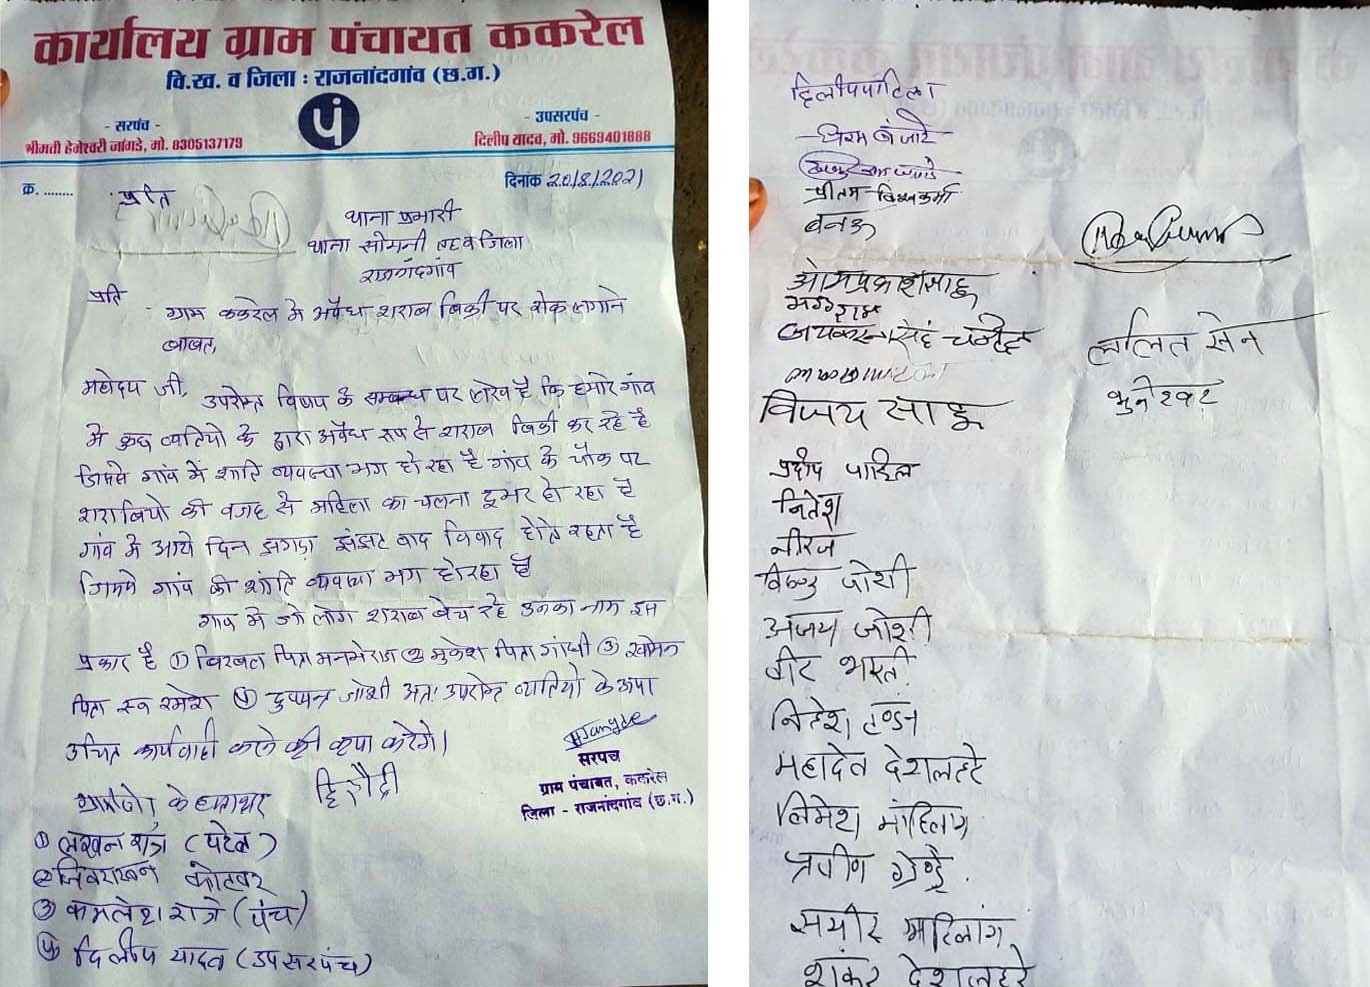 कार्यालय ग्राम पंचायत ककरेल
वि.ख. व जिला : राजनांदगांव (छ.ग.)
पं
- सरपंच -
श्रीमती हेमेश्वरी जांगडे, मो. 8305137179
- उपसरपंच -
दिलीप यादव, मो. 9669401888
क्र. ........
दिनांक 20/8/2021
प्रति
थाना प्रभारी
थाना सोमनी जिला
राजनांदगांव
प्रति
ग्राम ककरेल मे अवैध शराब बिक्री पर रोक लगाने
बाबत,
महोदय जी, उपरोक्त विषय के सम्बन्ध पर लेख है कि हमारे गांव
मे कुछ व्यतियो के द्वारा अवैध रूप से शराब बिक्री कर रहे है
जिससे गांव में शांति व्यवस्था भंग हो रहा है गांव के चौक पर
शराबियो की वजह से महिला का चलना दूभर हो रहा है
गांव मे आये दिन झगड़ा झंझट वाद विवाद होते रहता है
जिससे गांव की शांति व्यवस्था भंग हो रहा है
गांव मे जो लोग शराब बेच रहे उनका नाम इस
प्रकार है ① बिरबल पिता ② मुकेश पिता गांधी ③
पिता स्व रमेश ④ जोशी अतः उपरोक्त व्यतियो के ऊपर
उचित कार्यवाही करने की कृपा करेंगे।
Hjangde
सरपंच
ग्राम पंचायत, ककरेल
जिला - राजनांदगांव (छ.ग.)
के हस्ताक्षर
① लखन रात्रे (पटेल)
② कोटवार
③ कमलेश रात्रे (पंच)
④ दिलीप यादव (उपसरपंच)
प्रीतम विश्वकर्मा
ओमप्रकाश साहू
विजय साहू
प्रदीप पाटिल
नितेश
नीरज
विष्णु जोशी
अजय जोशी
वीर भारती
नितेश टण्डन
महादेव देशलहरे
निमेश
प्रवीण
समीर
शंकर देशलहरे
ललित सेन
भुनेश्वर